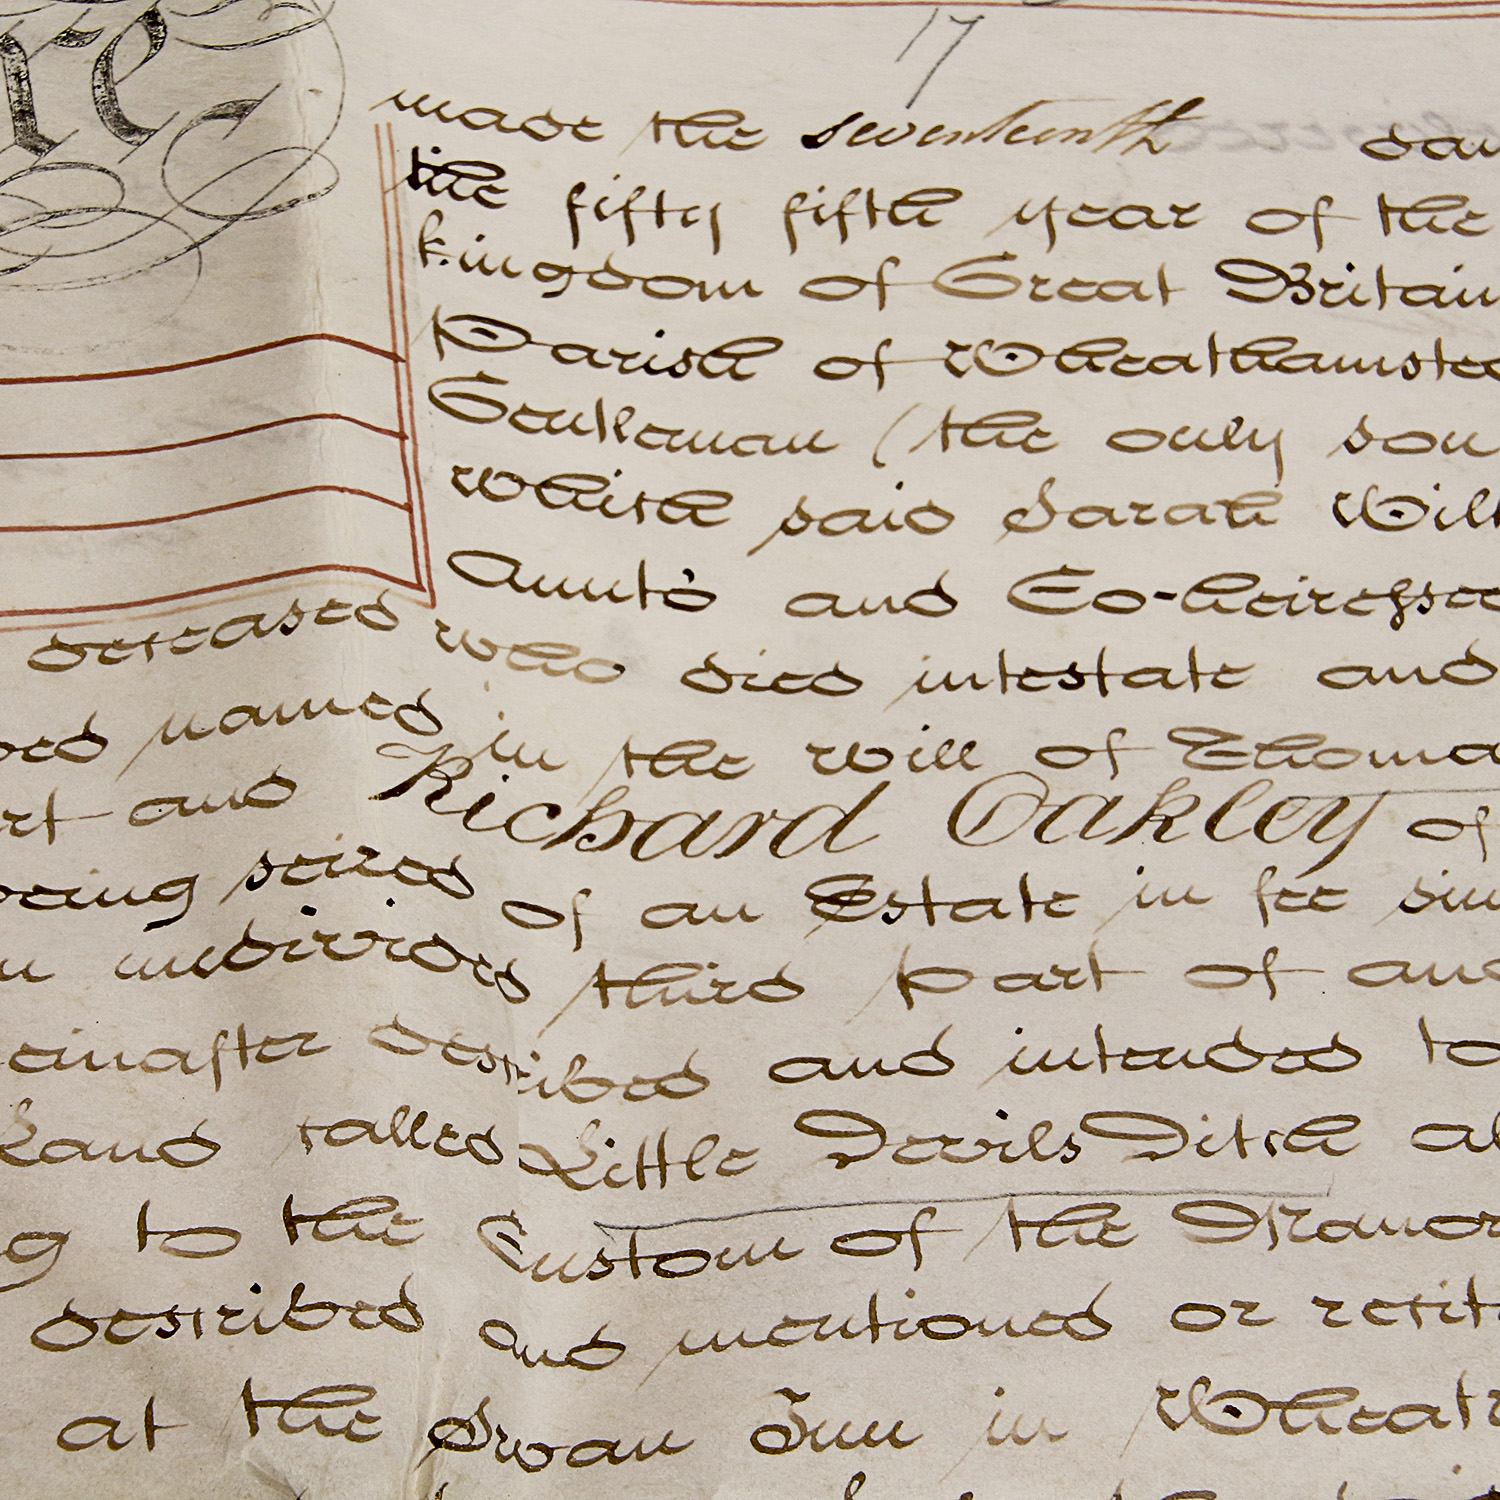 re
17
made the seventeenth day
the fifty fifth year of the
Kingdom of Great Britain
Parish of Wheathamsted
Gentleman (the only son
which said Sarah Will
Aunts and Co-heiresses
deceased who died intestate and
named in the will of Thomas
and Richard Oakley of
being seized of an Estate in fee sim
undivided third part of and
described and intended to
Land called Little Devils Ditch al
to the Custom of the Manor
described and mentioned or recit
at the Swan Inn in Wheath